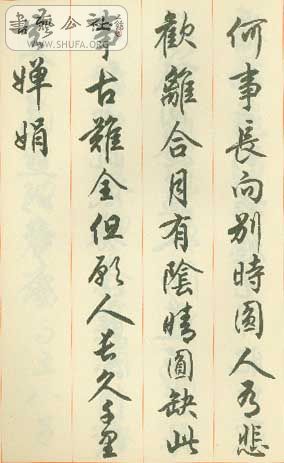 何事長向別時圓人有悲
歡離合月有陰晴圓缺此
事古難全但願人長久千里
嬋娟
© WWW.SHUFA.ORG